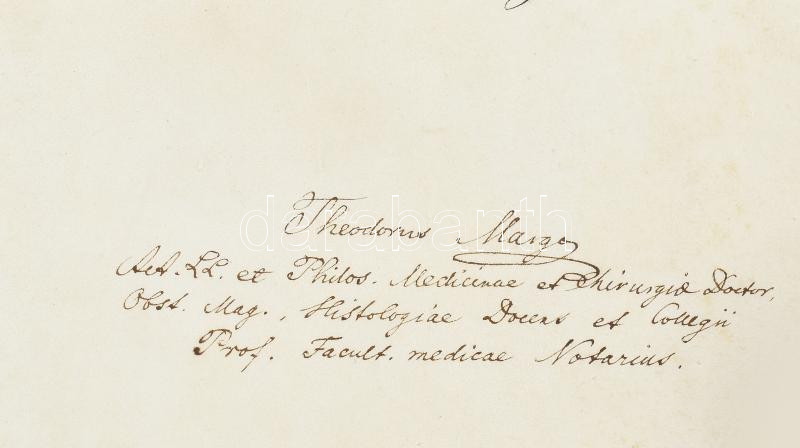 Theodorus Margo
AA. LL. et Philos. Medicinae et Chirurgiæ Doctor,
Obst. Mag., Histologiae Docens et Collegii
Prof. Facult. medicae Notarius.
darabanth